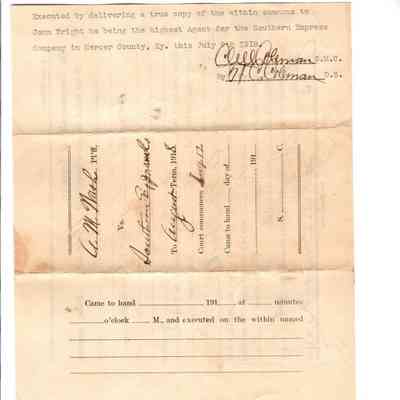 Executed by delivering a true copy of the within summons to
John Bright he being the highest Agent for the Southern Express
Company in Mercer County, Ky. this July 9th 1918.
Coleman S.M.C.
By H. C. Coleman D.S.
A. M. Nash Pl'ff,
Vs.
Southern Express
To August Term, 1918
Court commences Aug 12
Came to hand day of
191
S. C.
Came to hand 191 at minutes
o'clock M., and executed on the within named